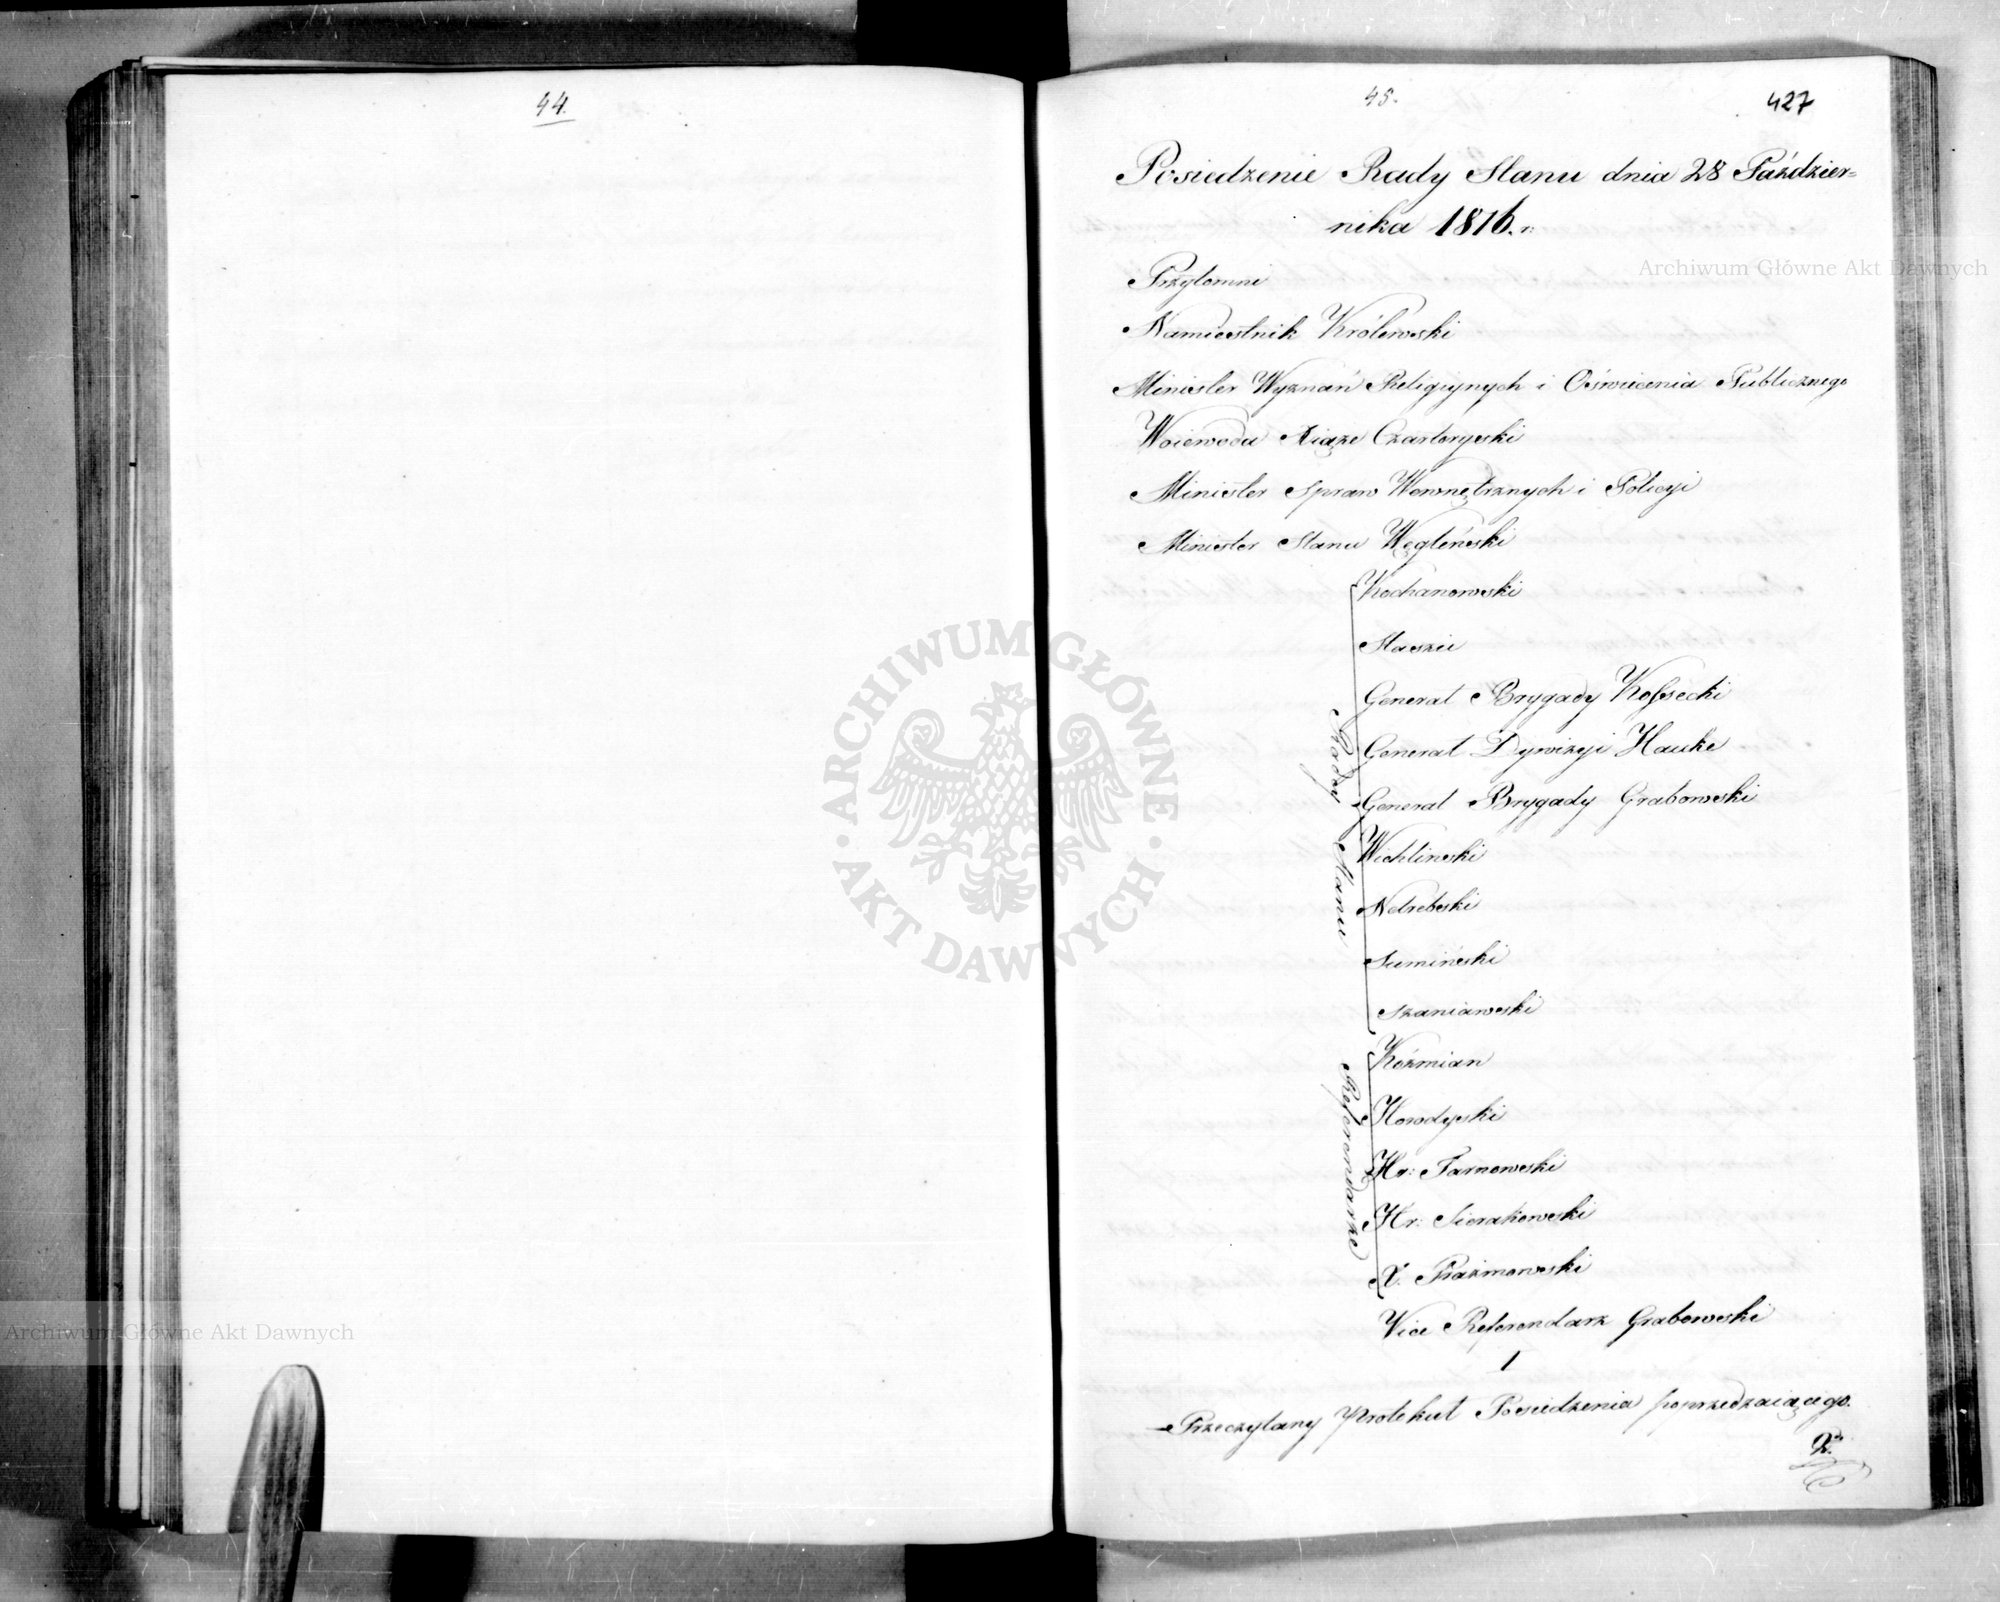 44.
45.
427
Posiedzenie Rady Stanu dnia 28 Paździer=
nika 1816. r:
Przytomni
Namiestnik Królewski
Minister Wyznań Religiynych i Oświecenia Publicznego
Woiewoda Xiąże Czartoryski
Minister Spraw Wewnętrznych i Policyi
Minister Stanu Węgleński
Radcy Stanu
Kochanowski
Staszic
Generał Brygady Kossecki
Generał Dywizyi Hauke
Generał Brygady Grabowski
Wichlinski
Netrebski
Sumiński
Szaniawski
Referendarze
Koźmian
Horodyski
Hr: Tarnowski
Hr: Sierakowski
X. Prażmowski
Vice Referendarz Grabowski
1
Przeczytany Protokuł Posiedzenia poprzedzaiącego.
2.
ARCHIWUM GŁÓWNE AKT DAWNYCH
Archiwum Główne Akt Dawnych
Archiwum Główne Akt Dawnych